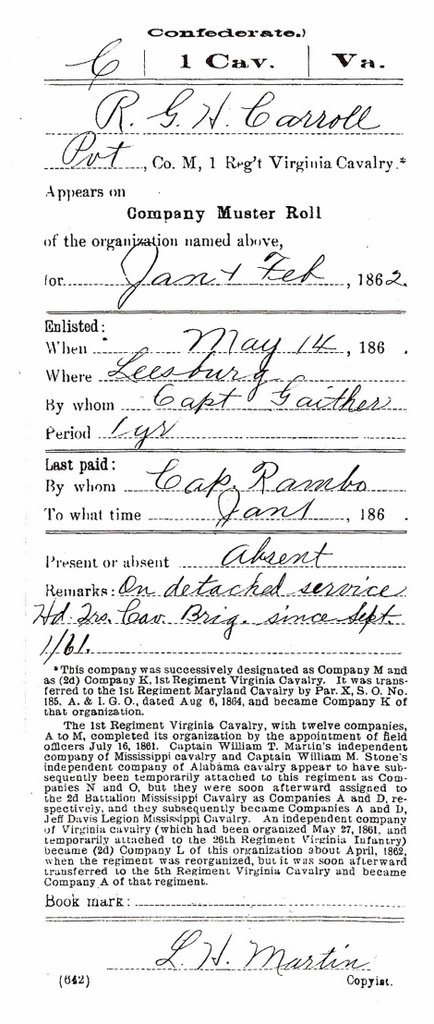 Confederate.)
C | 1 Cav. | Va.
R. G. H. Carroll
Pvt, Co. M, 1 Reg't Virginia Cavalry.*
Appears on
Company Muster Roll
of the organization named above,
for Jan + Feb, 1862.
Enlisted:
When May 14, 186 .
Where Leesburg
By whom Capt Gaither
Period 1 yr
Last paid:
By whom Cap. Rambo
To what time Jan 1, 186 .
Present or absent Absent
Remarks: On detached service
Hd. Qrs. Cav. Brig. since Sept.
1/61.
*This company was successively designated as Company M and
as (2d) Company K, 1st Regiment Virginia Cavalry. It was trans-
ferred to the 1st Regiment Maryland Cavalry by Par. X, S. O. No.
185, A. & I. G. O., dated Aug 6, 1864, and became Company K of
that organization.
The 1st Regiment Virginia Cavalry, with twelve companies,
A to M, completed its organization by the appointment of field
officers July 16, 1861. Captain William T. Martin's independent
company of Mississippi cavalry and Captain William M. Stone's
independent company of Alabama cavalry appear to have sub-
sequently been temporarily attached to this regiment as Com-
panies N and O, but they were soon afterward assigned to
the 2d Battalion Mississippi Cavalry as Companies A and D, re-
spectively, and they subsequently became Companies A and D,
Jeff Davis Legion Mississippi Cavalry. An independent company
of Virginia cavalry (which had been organized May 27, 1861, and
temporarily attached to the 26th Regiment Virginia Infantry)
became (2d) Company L of this organization about April, 1862,
when the regiment was reorganized, but it was soon afterward
transferred to the 5th Regiment Virginia Cavalry and became
Company A of that regiment.
Book mark:
L. H. Martin
(642) Copyist.